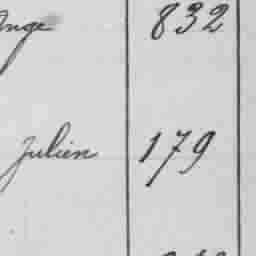 Ange 832
Julien 179